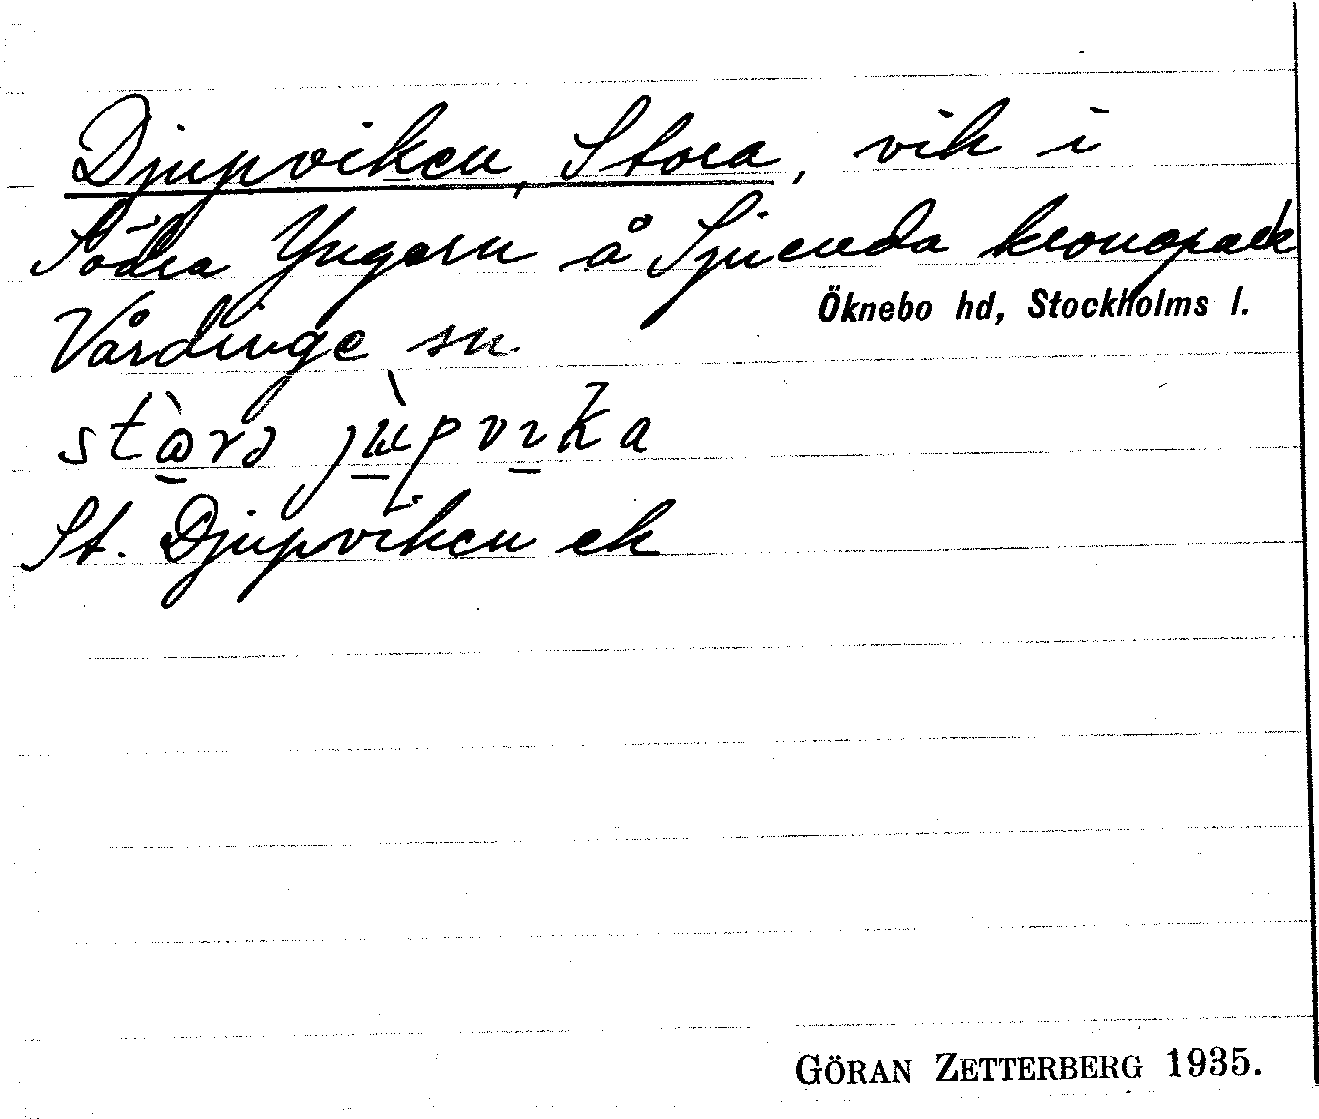 Djupviken, Stora, vik i
Södra Yngern å Sjuenda kronopark
Öknebo hd, Stockholms l.
Vårdinge sn.
St. Djupviken ek
GÖRAN ZETTERBERG 1935.